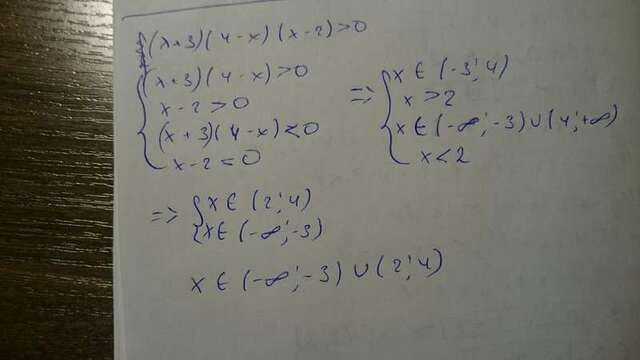 (x+3)(4-x)(x-2)>0
{(x+3)(4-x)>0
x-2>0
(x+3)(4-x)<0
x-2=0
=> {x ∈ (-3;4)
x>2
x ∈ (-∞;-3)∪(4;+∞)
x<2
=> {x ∈ (2;4)
{x ∈ (-∞;-3)
x ∈ (-∞;-3)∪(2;4)